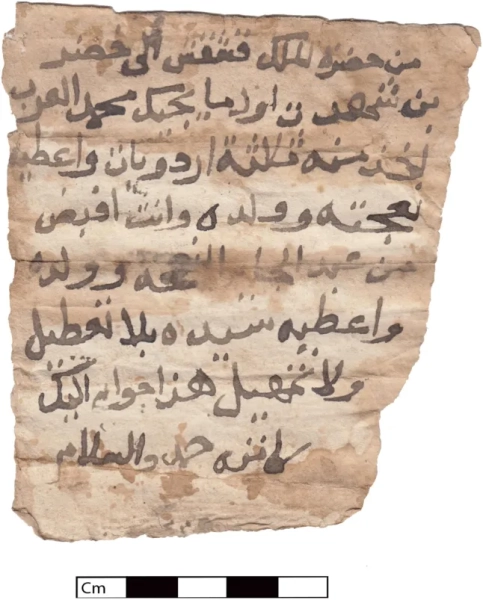 من حضرة الملك قشقش الى خضر
بن شهدت اول ما يجيك محمد العرب
تخذ منه ثلثة اردويات واعطيه
نعجته وولده وانت اقبض
من عبد الجابر النعجه وولده
واعطيه سيده بلا تعطيل
ولا تمهيل هذا جوابي اليك
كاتبه حمد والسلام
Cm